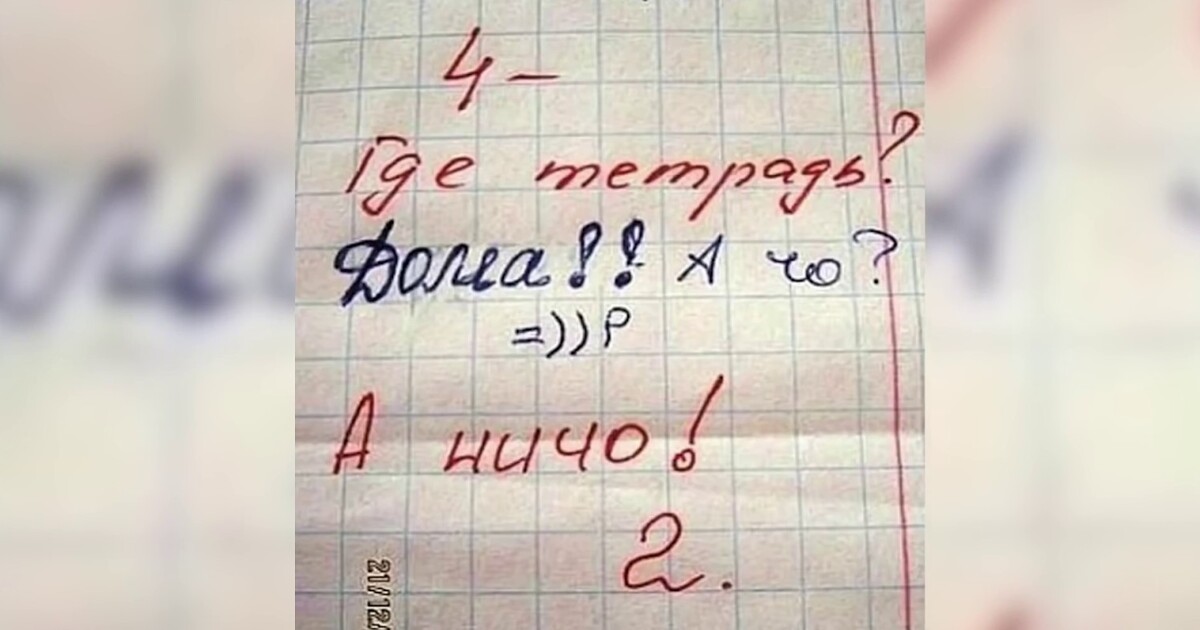 4-
Где тетрадь?
Дома!! А чо?
=))P
А ничо!
2.
21/12/